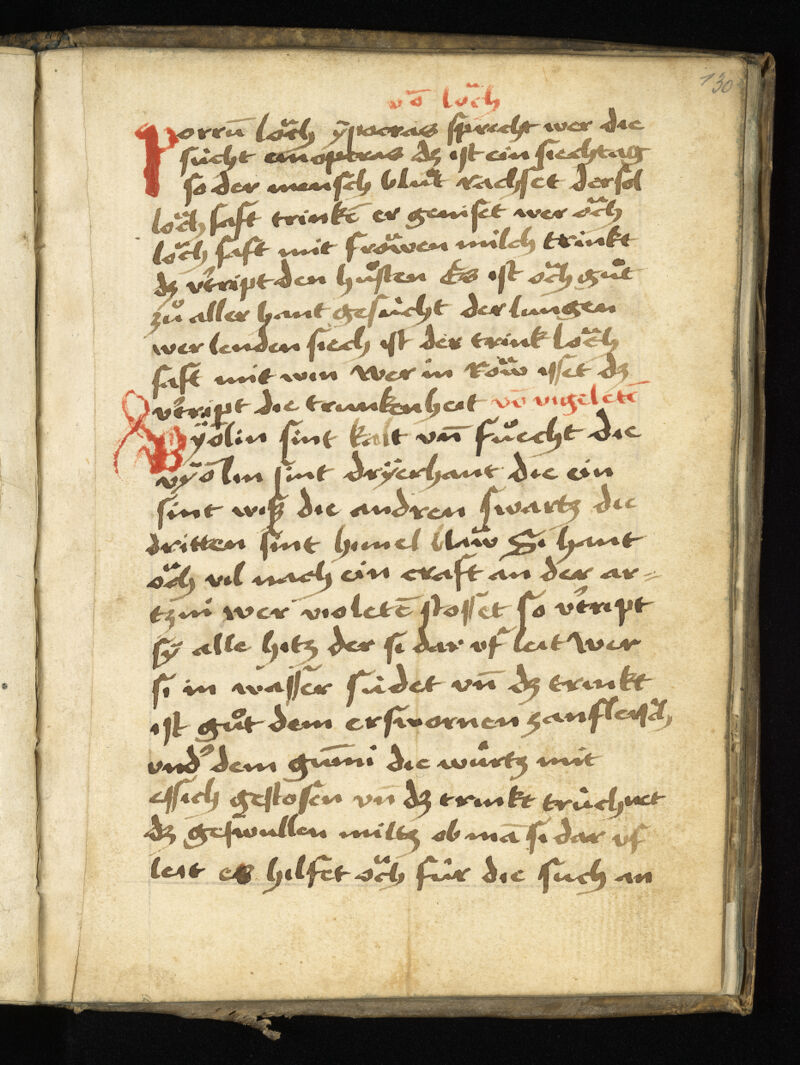 130
vō lo᷵ch
Porrū lo᷵ch ÿpocras spricht wer die
sücht emoptoras dʒ ist ein siechtag
so der mensch blůt rachset der sol
lo᷵ch saft trinkē er geniset wer o᷵ch
lo᷵ch saft mit frŏwen milch trinkt
dʒ v'tript den hůsten Es ist o᷵ch gůt
zů aller hant gesücht der lungen
wer lenden siech ist der trink lo᷵ch
saft mit win Wer in Röw isset dʒ
v'tript die trunkenheit vō vigeletē
Vÿolin sint kalt vn̄ fůcht die
vÿolin sint drÿerhant die ein
sint wiß die andren swartz die
dritten sint himel blaw Si hant
o᷵ch vil nach ein craft an der ar=
tzni wer violetē stosset so v'tript
sÿ alle hitz der si dar vf leit Wer
si in wasser südet vn̄ dʒ trinkt
ist gůt dem erswornen zanfleisch
vnd' dem gum̄i die würtz mit
essich gestosen vn̄ dʒ trinkt trüchnet
dʒ geswullen miltz ob mā si dar vf
leit es hilfet o᷵ch für die such an